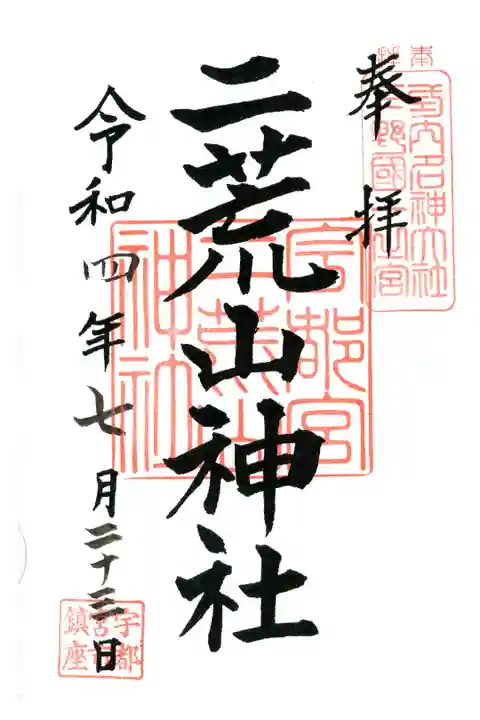 奉拝
延喜式内名神大社
下野國一之宮
二荒山神社
宇都宮
二荒山
神社
令和四年七月二十三日
宇都
宮市
鎮座